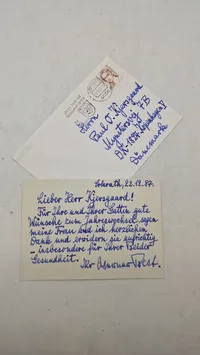 Herrn
Paul V. Kjersgaard
7B
Kopenhagen V
Dänemark
Lohrath, 22.12.87.
Lieber Herr Kjersgaard!
Für Ihre und Ihrer Gattin gute
Wünsche zum Jahreswechsel sagen
meine Frau und ich herzlichen
Dank und erwidern sie aufrichtig
– insbesondere für Ihrer Beider
Gesundheit.
Ihr